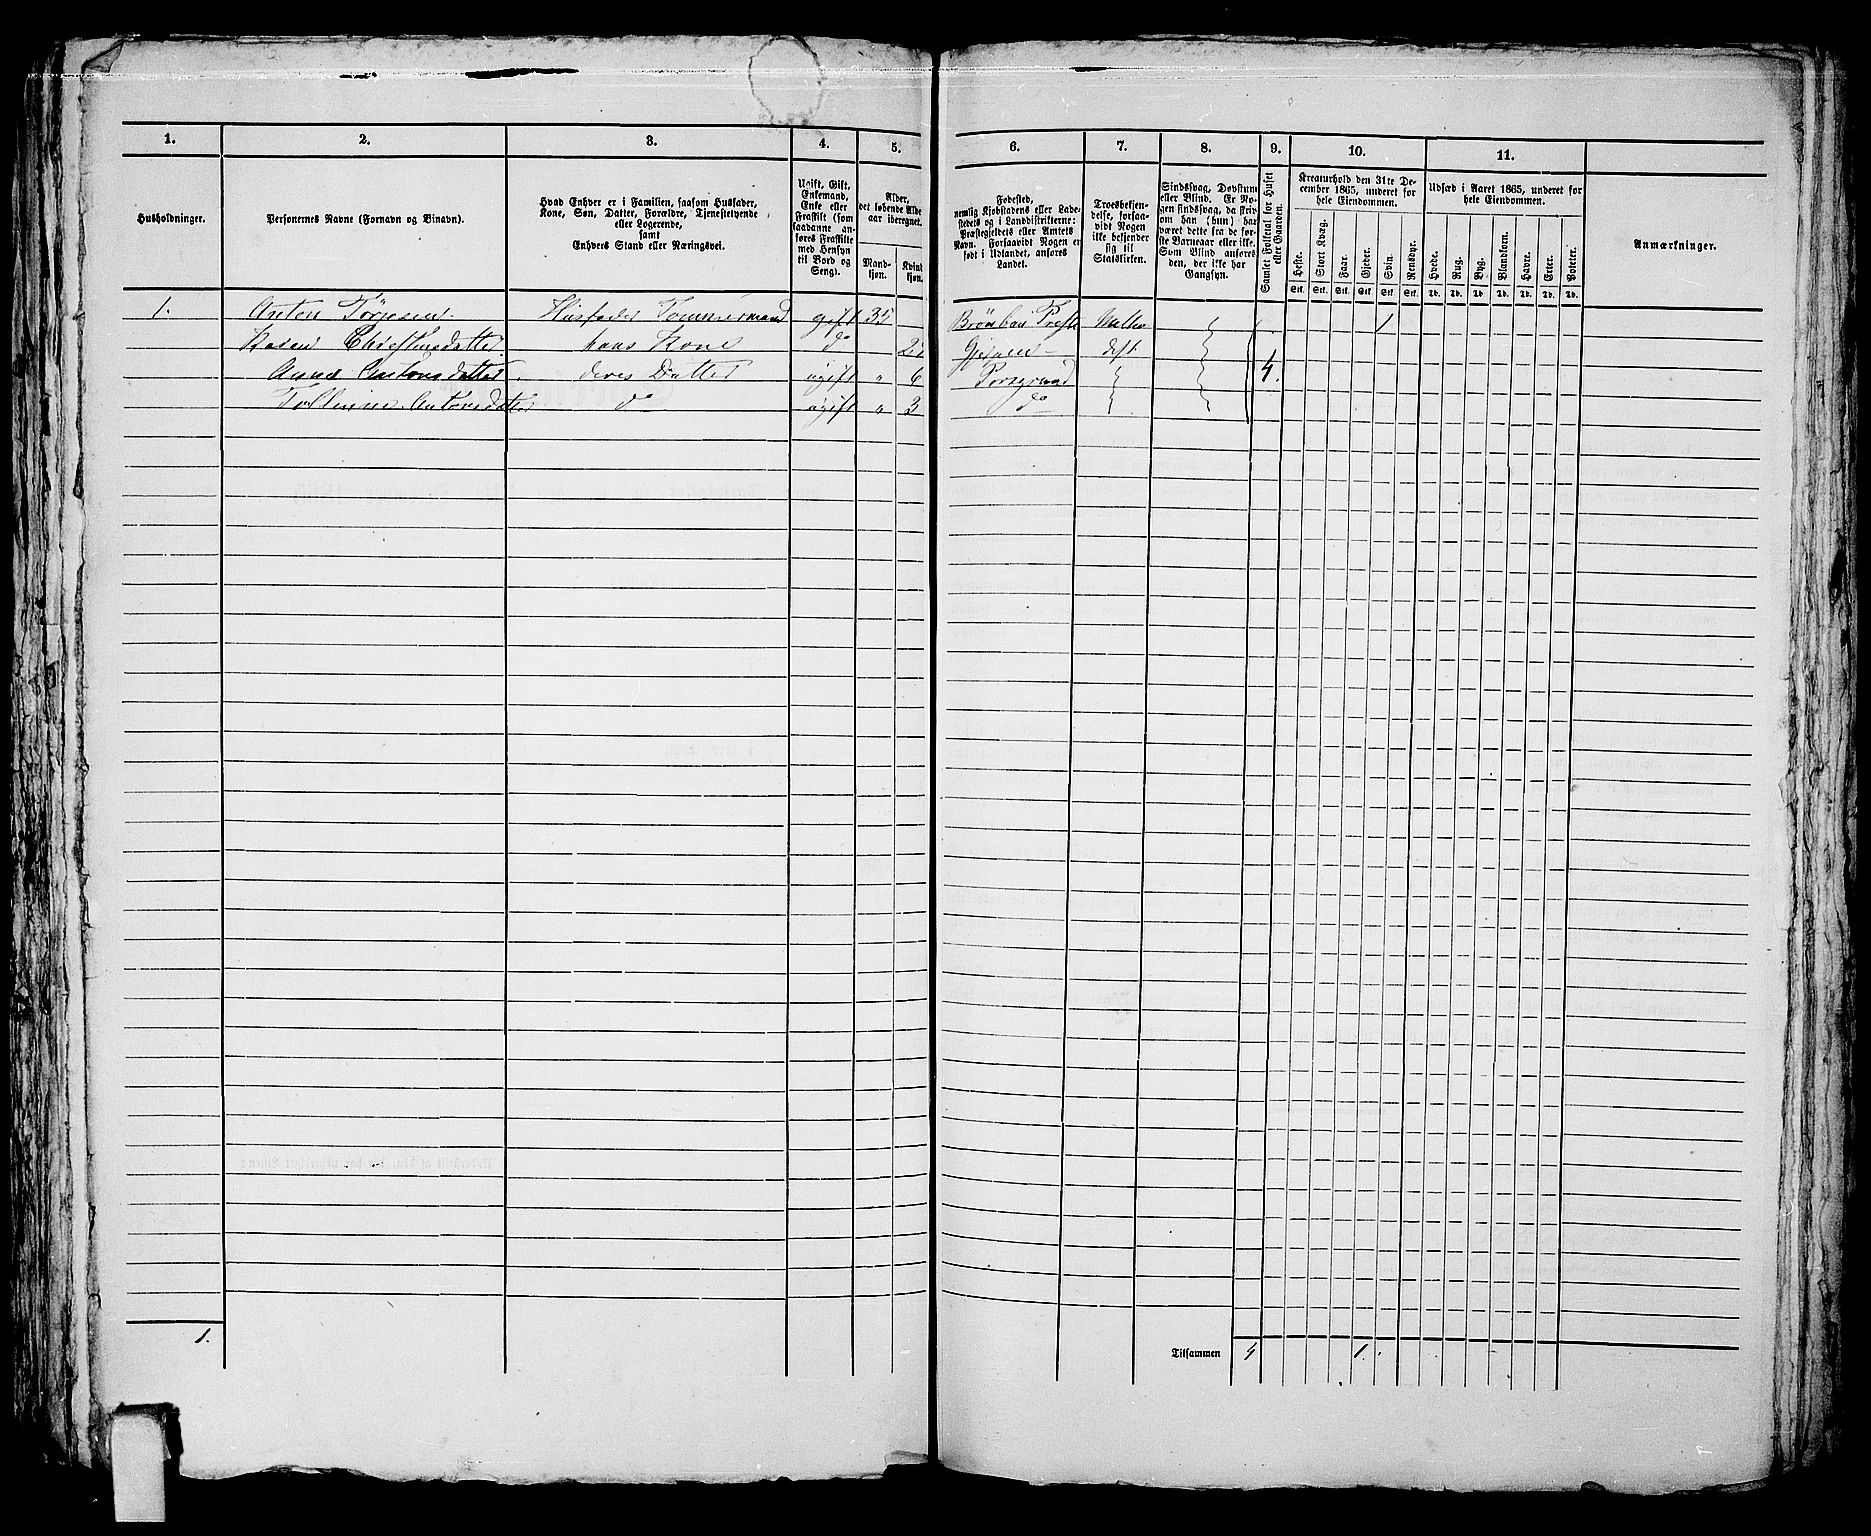 1. 2. 3. 4. 5. 6. 7. 8. 9. 10. 11.
Husholdninger.
Personernes Navne (Fornavn og Binavn).
Hvad Enhver er i Familien, saasom Husfader,
Kone, Søn, Datter, Forældre, Tjenestetyende
eller Logerende,
samt
Enhvers Stand eller Næringsvei.
Ugift, Gift,
Enkemand,
Enke eller
Fraskilt (som
saadanne an-
føres Fraskilte
med Hensyn
til Bord og
Seng).
Alder,
det løbende Alders-
aar iberegnet.
Mand-
kjøn.
Kvind-
kjøn.
Fødested,
nemlig Kjøbstadens eller Lade-
stedets og i Landdistrikterne:
Præstegjeldets eller Amtets
Navn. Forsaavidt Nogen er
født i Udlandet, anføres
Landet.
Troesbekjen-
delse, forsaa-
vidt Nogen
ikke bekjender
sig til
Statskirken.
Sindssvag, Døvstum
eller Blind. Er No-
gen sindssvag, da skriv
om han (hun) har
været dette fra de før-
ste Barneaar eller ikke.
Som Blind anføres
den, der ikke har
Gangsyn.
Samlet Folketal for Huset
eller Gaarden.
Kreaturhold den 31te De-
cember 1865, underet for
hele Eiendommen.
Heste. Stort Kvæg. Faar. Gjeder. Svin. Rensdyr.
Stk. Stk. Stk. Stk. Stk. Stk.
Udsæd i Aaret 1865, underet for
hele Eiendommen.
Hvede. Rug. Byg. Blandkorn. Havre. Erter. Poteter.
Td. Td. Td. Td. Td. Td. Td.
Anmærkninger.
1. Anton Torjesen Husfader Tømmermand gift 35 1
Karen Christensdatter hans Kone do Gjerpen
Anne Antonsdatter. deres Datter ugift " 6 Porsgrund 4.
Antonsdatter do ugift " 3 do
1.
Tilsammen 4 1.